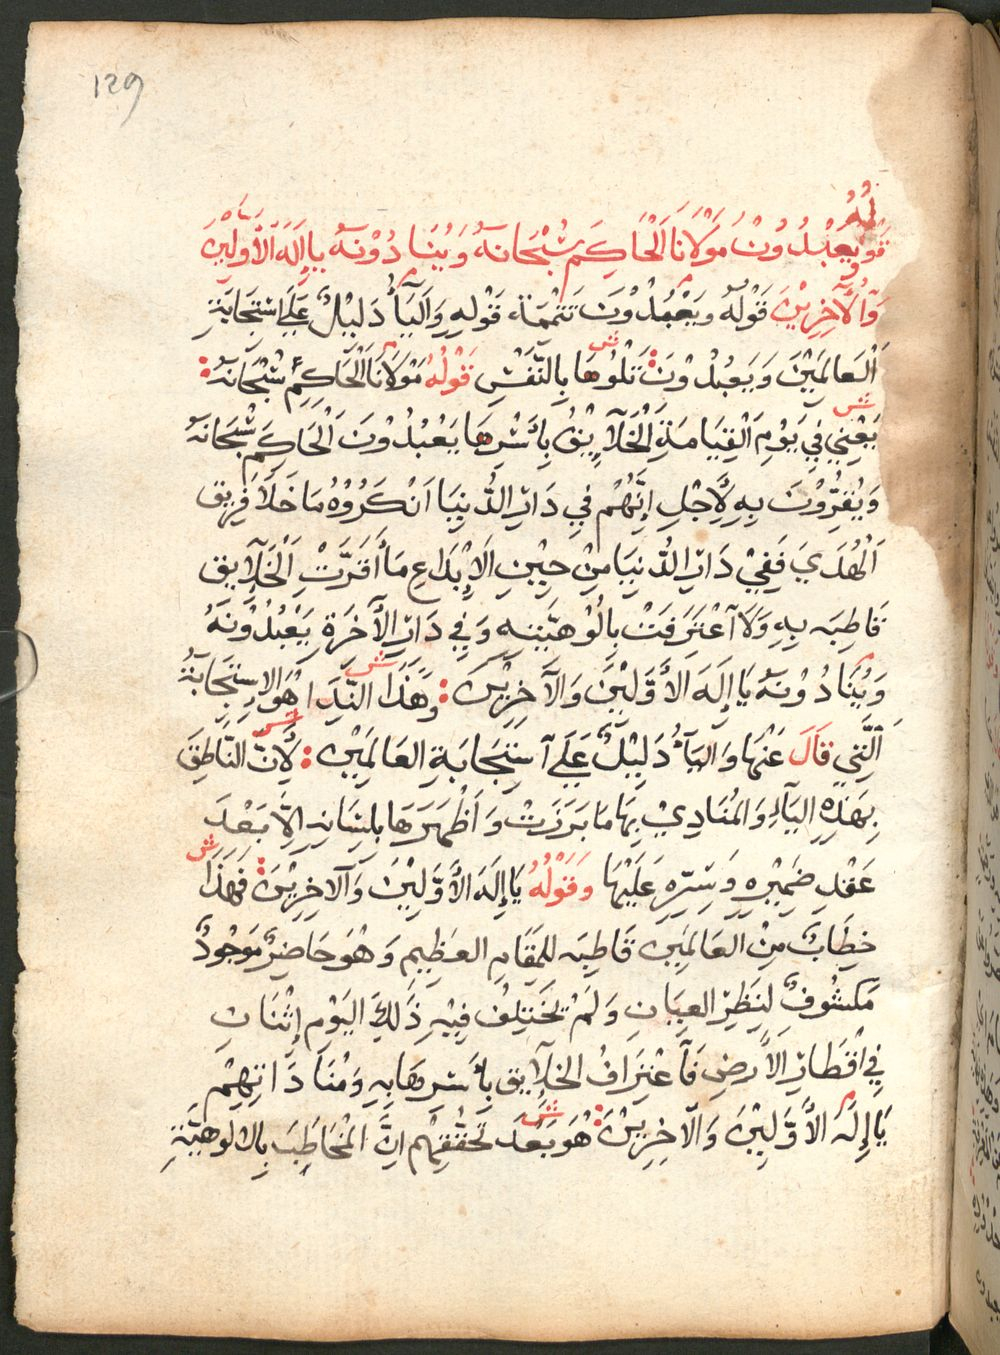 129
قَوْلُهُ وَيَعْبُدُوْنَ مَوْلَانَا الْحَاكِمَ سُبْحَانَهُ وَيُنَادُوْنَهُ يَا إِلَهَ الأَوَّلِيْنَ
وَالْآخِرِيْنَ قَوْلُهُ وَيَعْبُدُوْنَ تَتْمِمَةً قَوْلِهِ وَالْيَآءُ دَلِيْلٌ عَلَى اسْتِجَابَةِ
الْعَالَمِيْنَ وَيَعْبُدُوْنَ: ش تَلُوهَا بِالنَّفْسِ قَوْلُهُ مَوْلَانَا الْحَاكِمُ سُبْحَانَهُ:
ش يَعْنِي فِي يَوْمِ الْقِيَامَةِ الْخَلَآيِقُ بِأَسْرِهَا يَعْبُدُوْنَ الْحَاكِمَ سُبْحَانَهُ
وَيُقِرُّوْنَ بِهِ لِأَجْلِ إِنَّهُمْ فِي دَارِ الدُّنِيَا انْكَرُوْهُ مَا خَلَا فَرِيق
الْهُدَى فَفِيْ دَارِ الدُّنِيَا مِنْ حِيْنِ الإِبْدَاعِ مَا أَقَرَّتْ الْخَلَآيِق
قَاطِبَه بِهِ وَلَا آعْتَرَفَتْ بِالُوْهِيَّتِهِ وَفِي دَارِ الْآخِرَةِ يَعْبُدُوْنَهُ
وَيُنَادُوْنَهُ يَا إِلَهَ الأَوَّلِيْنَ وَالآخِرِيْنَ: ش وَهَذَا النِّدَا هُوَ الاِسْتِجَابَةُ
الَّتِي قَالَ عَنْهَا وَاليَآءُ دَلِيْلٌ عَلَى آسْتِجَابَةِ العَالَمِيْنَ: ش لِأَنَّ النَّاطِقَ
بِهَذِهِ اليَآءِ وَالمُنَادِيْ بِهَا مَا بَرَزَتْ وَأَظْهَرَهَا بِلِسَانِهِ إِلَّا بَعْدَ
عَقْدِ ضَمِيْرِهِ وَسِرِّهِ عَلَيْهَا وَقَوْلُهُ يَا إِلَهَ الأَوَّلِيْنَ وَآلاخِرِيْنَ: ش فَهَذَا
خِطَابٌ مِنْ العَالَمِيْنَ قَاطِبَه لِلمَقَامِ العَظِيمِ وَهُوَ حَاضِرٌ مَوْجُودٌ
مَكْشُوفٌ لِنَظَرِ العِيَانِ وَلَمْ يَخْتَلِف فِيْهِ ذَلِكَ اليَوْمِ إِثْنَانِ
فِي اقْطَارِ الأَرضِ فَآعْتِرَافُ الخَلَآيِق بِأَسْرِهَا بِهِ وَمُنَادَاتِهِمْ
يَا إِلَهَ الأَوَّلِيْنَ وَالآخِرِيْنَ: ش هُوَ بَعْدَ تَحَقُّقِهِمْ انَّ المُخَاطَبَ بِالالُوهِيَّةِ